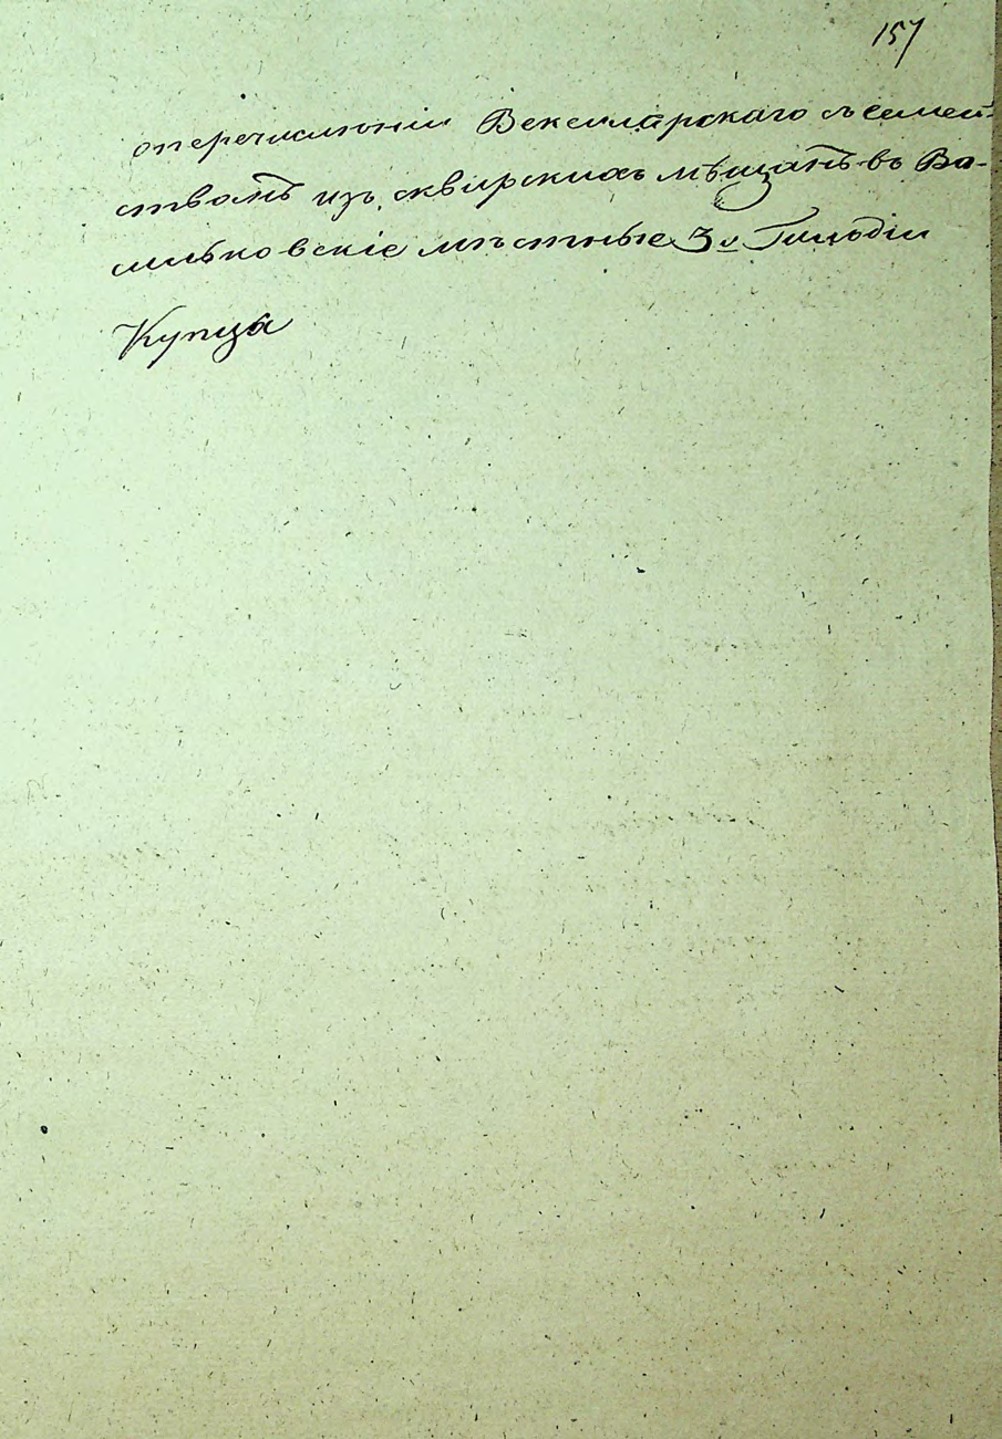 157
о перечисленіи Векслярскаго съ семей-
ствомъ изъ сквирскихъ мѣщанъ въ Ва-
сильковскіе мѣстные 3й Гильдіи
Купца